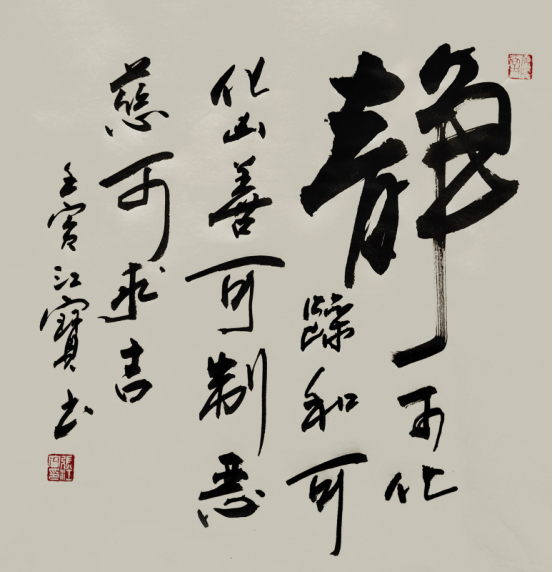 静可化
躁和可
化凶善可制恶
慈可求吉
壬寅江寶书